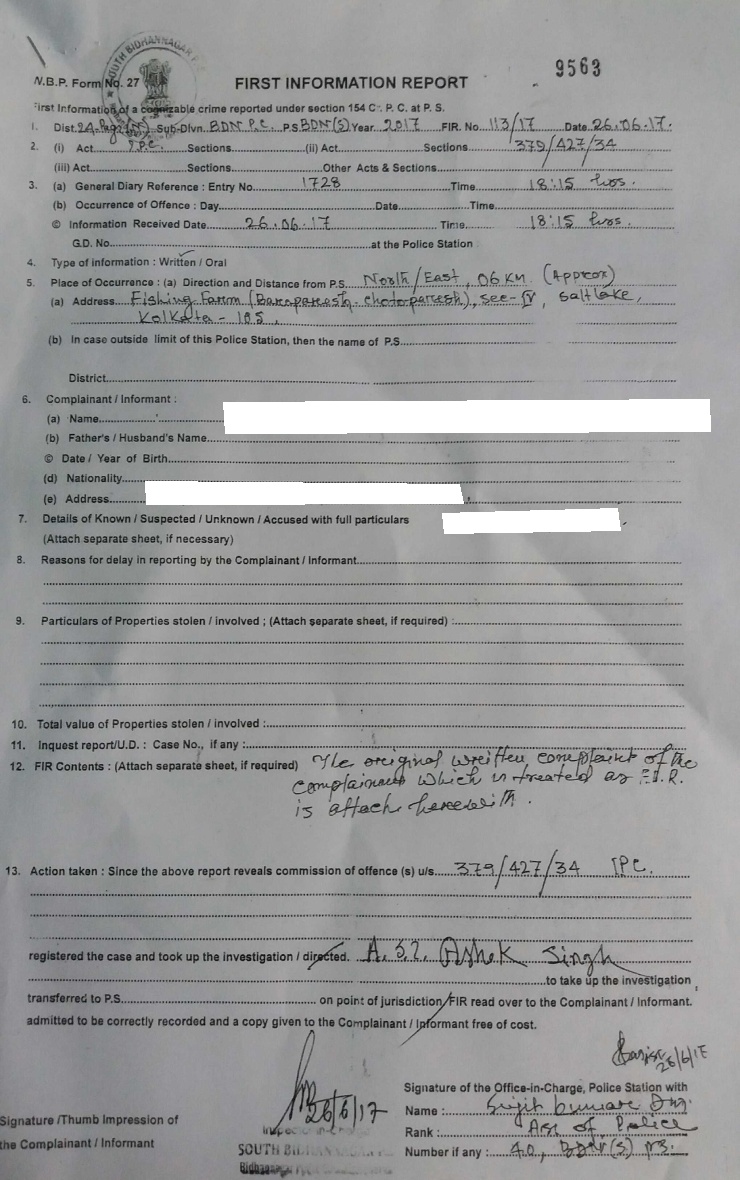 SOUTH BIDHANNAGAR P
9563
W.B.P. Form No. 27
FIRST INFORMATION REPORT
First Information of a cognizable crime reported under section 154 Cr. P. C. at P. S.
1. Dist. 24-Pgs (N) Sub-Divn. BDN P.C. P.S BDN(S) Year 2017 FIR. No. 113/17 Date 26.06.17.
2. (i) Act I.P.C. Sections (ii) Act Sections 379/427/34
(iii) Act Sections Other Acts & Sections
3. (a) General Diary Reference : Entry No. 1728 Time 18:15 hrs.
(b) Occurrence of Offence : Day Date Time
© Information Received Date 26.06.17 Time 18:15 hrs.
G.D. No. at the Police Station
4. Type of information : Written / Oral
5. Place of Occurrence : (a) Direction and Distance from P.S. North/East, 06 KM. (Approx)
(a) Address Fishing Farm (Baraparesh, chotoparesh), sec-IV, saltlake,
Kolkata - 105,
(b) In case outside limit of this Police Station, then the name of P.S.
District
6. Complainant / Informant :
(a) Name
(b) Father's / Husband's Name
© Date / Year of Birth
(d) Nationality
(e) Address
7. Details of Known / Suspected / Unknown / Accused with full particulars
(Attach separate sheet, if necessary)
8. Reasons for delay in reporting by the Complainant / Informant
9. Particulars of Properties stolen / involved ; (Attach separate sheet, if required) :
10. Total value of Properties stolen / involved :
11. Inquest report/U.D. : Case No., if any :
12. FIR Contents : (Attach separate sheet, if required) The original written complaint of the
complainant which is treated as F.I.R.
is attach herewith.
13. Action taken : Since the above report reveals commission of offence (s) u/s 379/427/34 IPC.
registered the case and took up the investigation / directed. A.S.I. Ashok Singh
to take up the investigation
transferred to P.S. on point of jurisdiction/FIR read over to the Complainant / Informant.
admitted to be correctly recorded and a copy given to the Complainant / Informant free of cost.
26/6/17
26/6/17
Signature of the Office-in-Charge, Police Station with
Signature /Thumb Impression of
the Complainant / Informant
Name : Sujit kumar
Rank : ASI of Police
Number if any : BDN(S) P.S.
Inspector-in-Charge
SOUTH BI
Bidhannagar